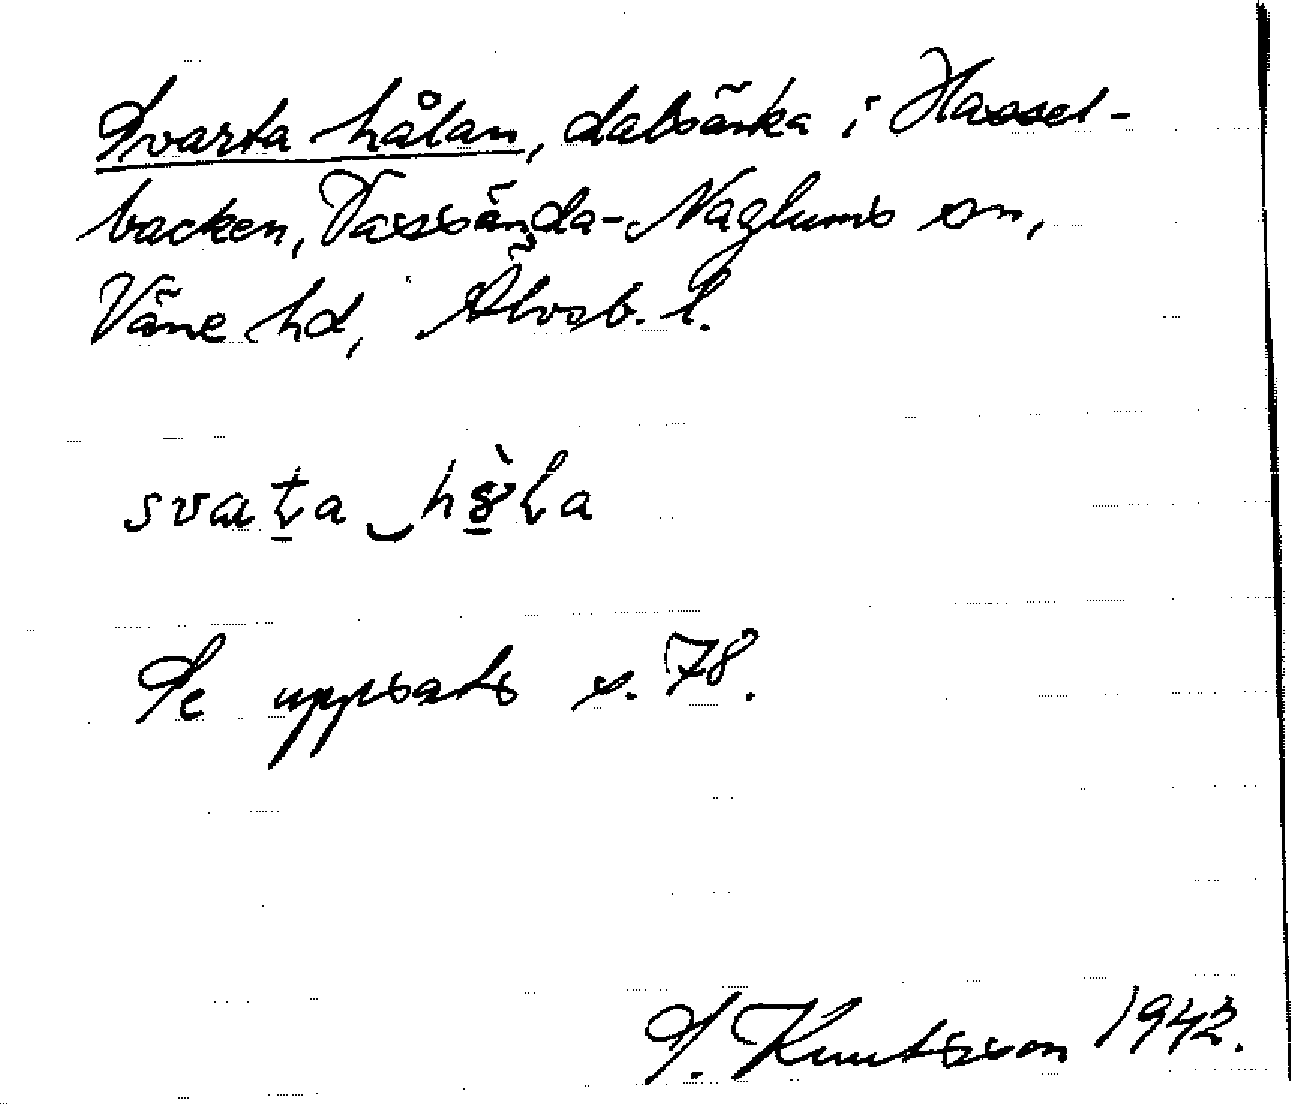 Svarta hålan, dalsänka i Hassel-
backen, Vassända-Naglums sn,
Väne hd, Älvsb. l.
Se uppsats s. 78.
S. Knutsson 1942.